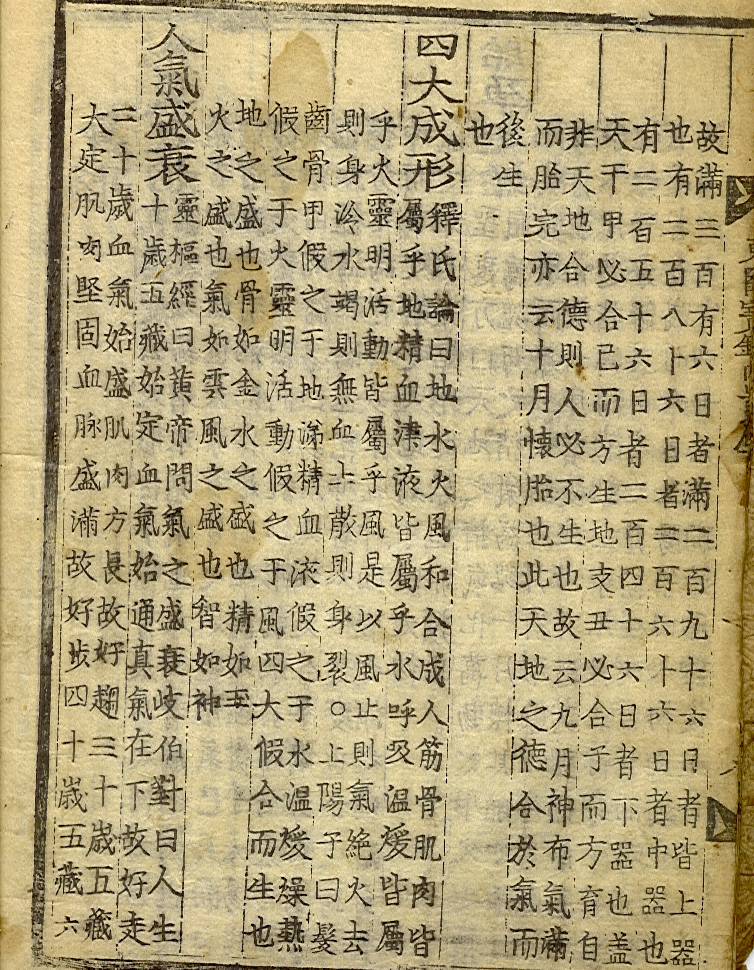 故滿三百有六日者滿二百九十六日者皆上器
也有二百八十六日者二百六十六日者中器也
有二百五十六日者二百四十六日者下器也盖
天干甲必合己而方生地支丑必合子而方育自
非天地合德則人必不生也故云九月神布氣滿
而胎完亦云十月懷胎也此天地之德合於氣而
後生
也
四大成形
釋氏論曰地水火風和合成人筋骨肌肉皆
屬乎地精血津液皆屬乎水呼吸温煖皆屬
乎火靈明活動皆屬乎風是以風止則氣絶火去
則身冷水竭則無血土散則身裂○上陽子曰髮
齒骨甲假之于地涕精血液假之于水温煖燥熱
假之于火靈明活動假之于風四大假合而生也
地之盛也骨如金水之盛也精如玉
火之盛也氣如雲風之盛也智如神
人氣盛衰
靈樞經曰黄帝問氣之盛衰岐伯對曰人生
十歲五藏始定血氣始通真氣在下故好走
二十歲血氣始盛肌肉方長故好趨三十歲五藏
大定肌肉堅固血脉盛滿故好步四十歲五藏六